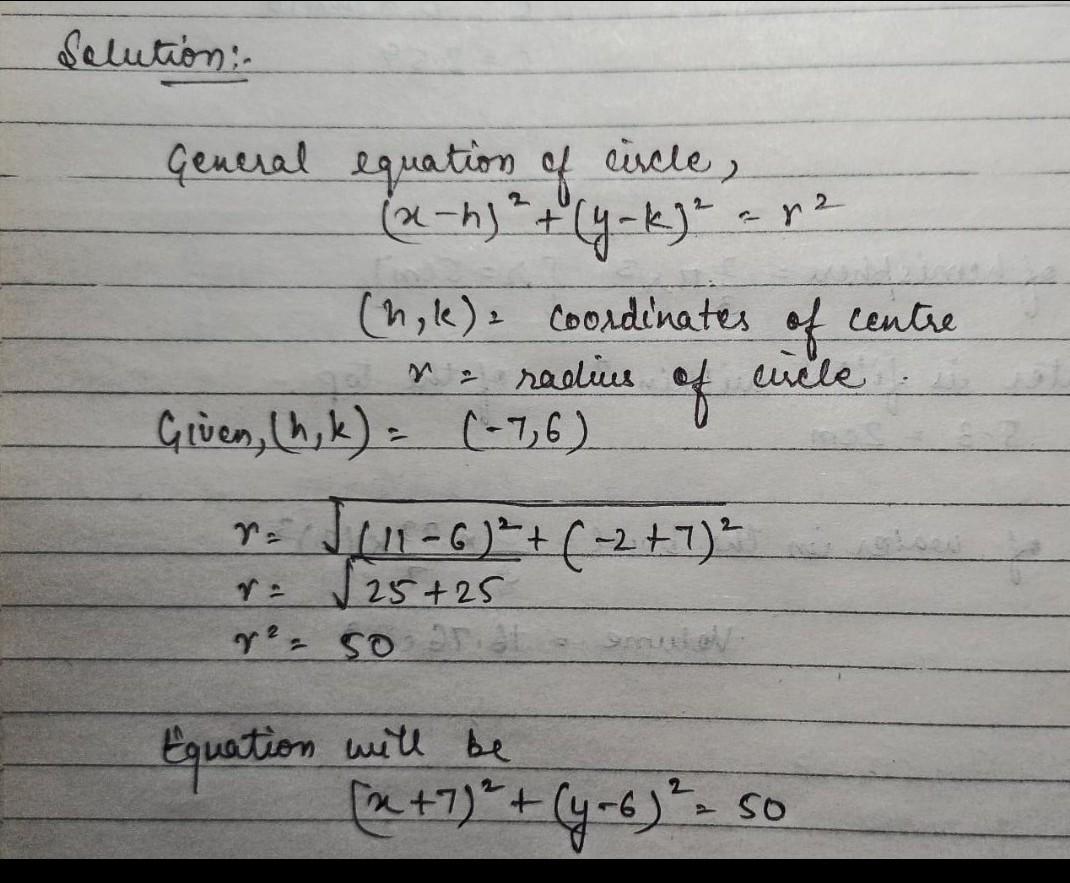 Solution:-
General equation of circle,
(x-h)² + (y-k)² = r²
(h,k) = coordinates of centre
r = radius of circle.
Given, (h,k) = (-7,6)
r = √(11-6)² + (-2+7)²
r = √25+25
r² = 50
Equation will be
(x+7)² + (y-6)² = 50